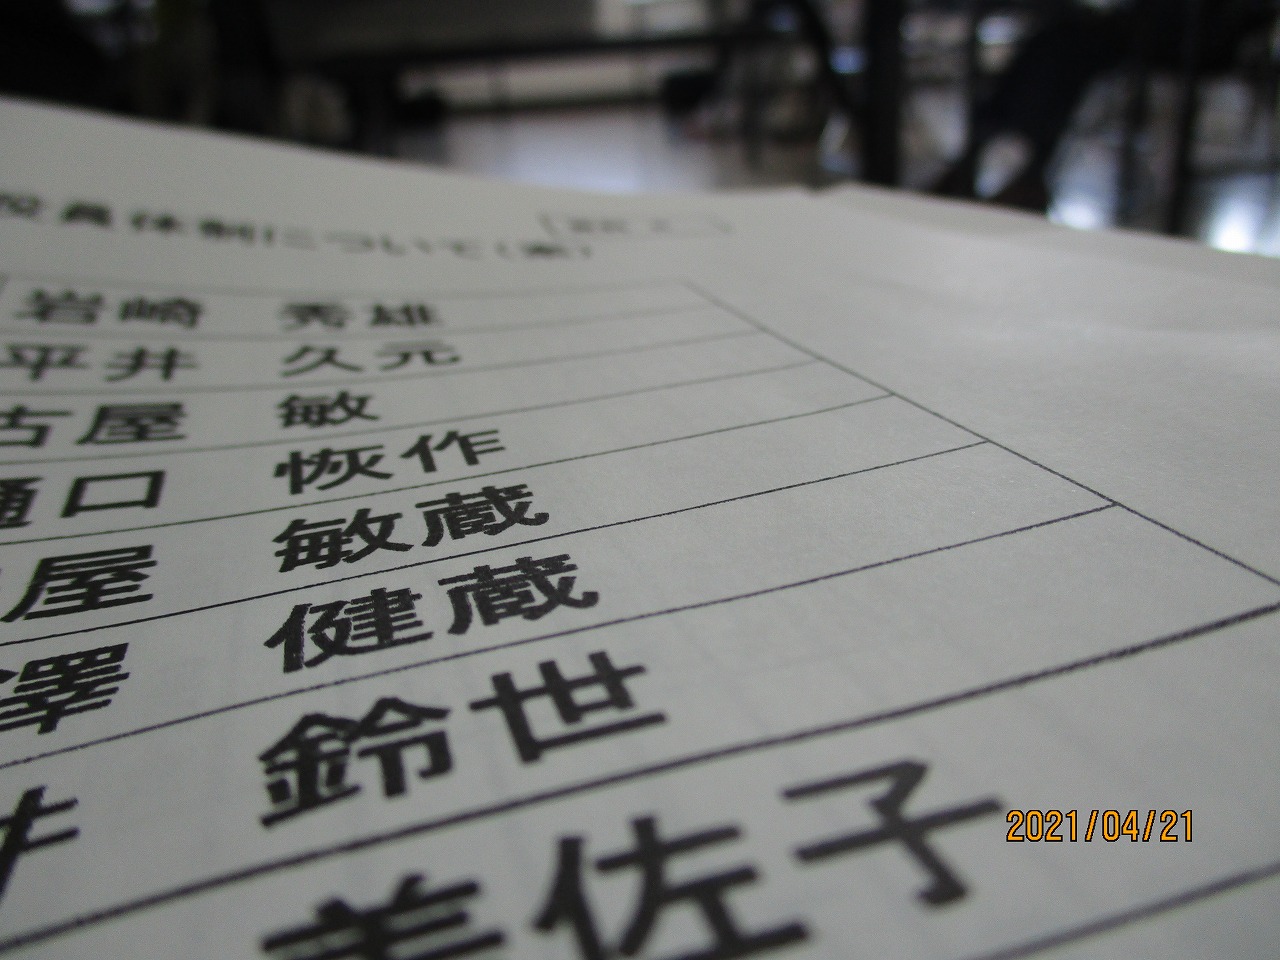 役員体制について(案)
岩崎 秀雄
平井 久元
古屋 敏
樋口 恢作
屋 敏蔵
澤 健蔵
井 鈴世
美佐子
2021/04/21